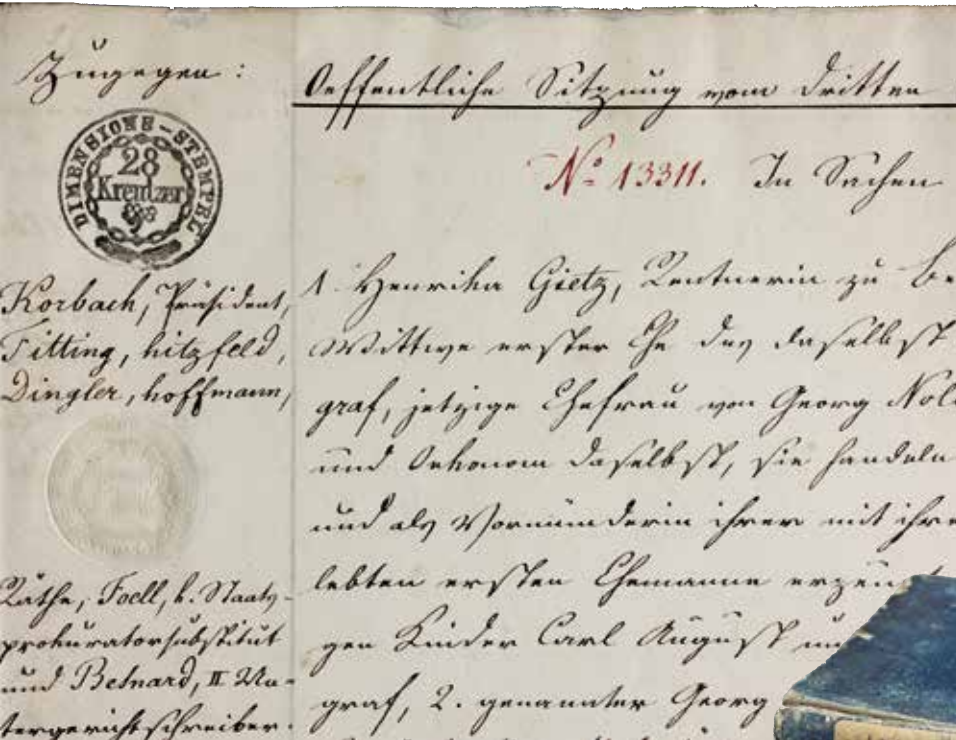 Zugegen:
DIMENSIONS-STEMPEL
28
Kreutzer
Korbach, Präsident,
Titting, hitzfeld,
Dingler, hoffmann,
Räthe, Foell, k. Staats-
prokuratorsubstitut
und Besnard, II Un-
tergerichtschreiber.
Oeffentliche Sitzung vom dritten
No 13311. In Sachen
1 Henrika Gietz, Rentnerin zu Be
Wittwe erster Ehe des daselbst
graf, jetzige Ehefrau von Georg Nol
und Oekonom daselbst, sie handeln
und als Vormünderin ihrer mit ihre
lebten ersten Ehemanne erzeug
gen Kinder Carl August un
graf, 2. genannter Georg